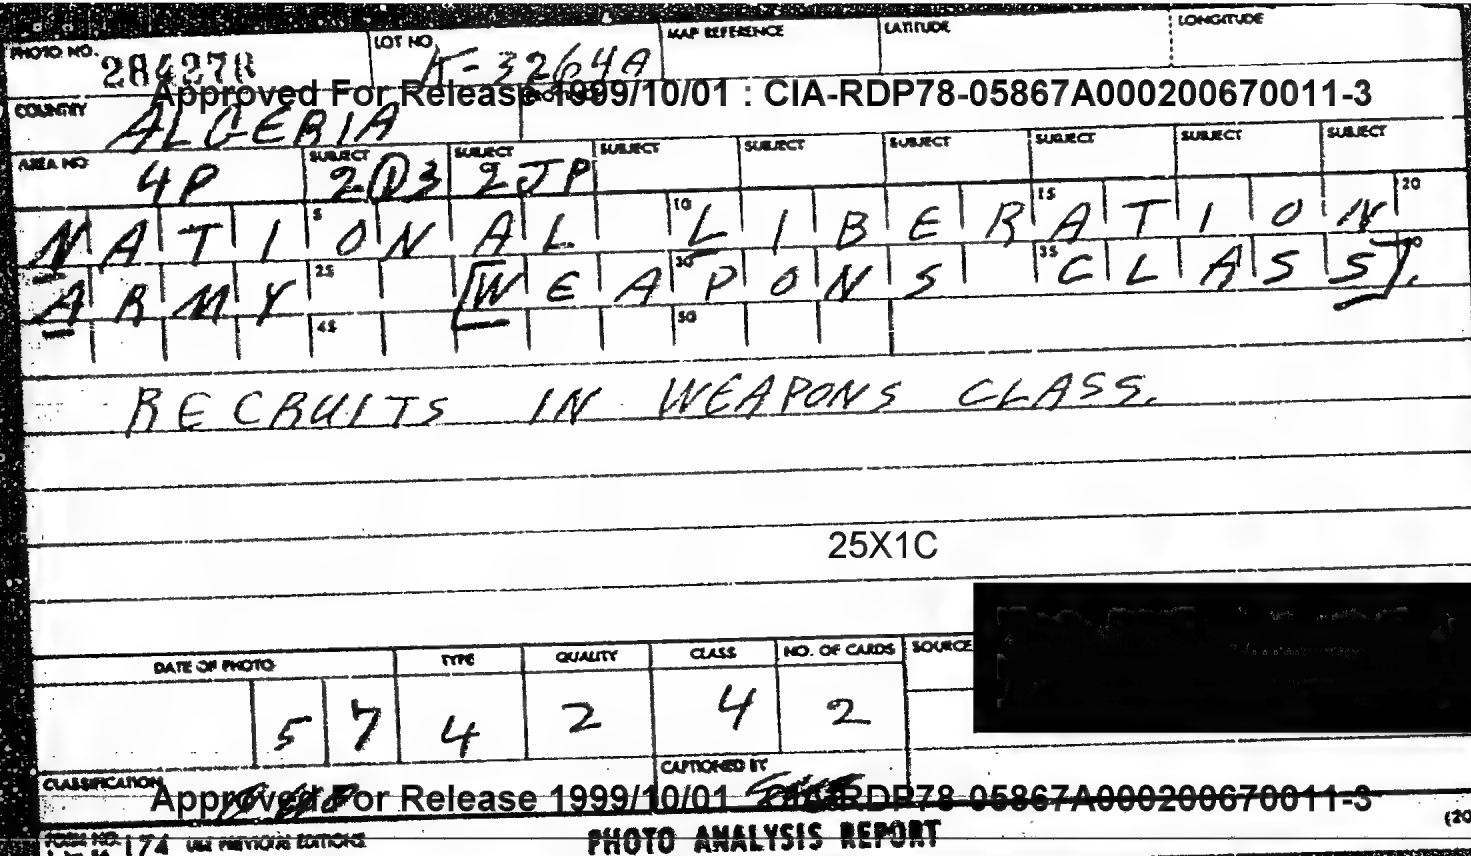 PHOTO NO. 284278 LOT NO K-3264A MAP REFERENCE LATITUDE LONGITUDE
Approved For Release 1999/10/01 : CIA-RDP78-05867A000200670011-3
COUNTRY ALGERIA
AREA NO 4P SUBJECT 2Q3 SUBJECT 2JP SUBJECT SUBJECT SUBJECT SUBJECT SUBJECT SUBJECT
5 10 15 20
NATIONAL LIBERATION
25 30 35 40
ARMY [WEAPONS CLASS].
45 50
RECRUITS IN WEAPONS CLASS.
25X1C
DATE OF PHOTO TYPE QUALITY CLASS NO. OF CARDS SOURCE
57 4 2 4 2
CLASSIFICATION CAPTIONED BY
Approved For Release 1999/10/01 : CIA-RDP78-05867A000200670011-3
FORM NO. 174 USE PREVIOUS EDITIONS PHOTO ANALYSIS REPORT (20